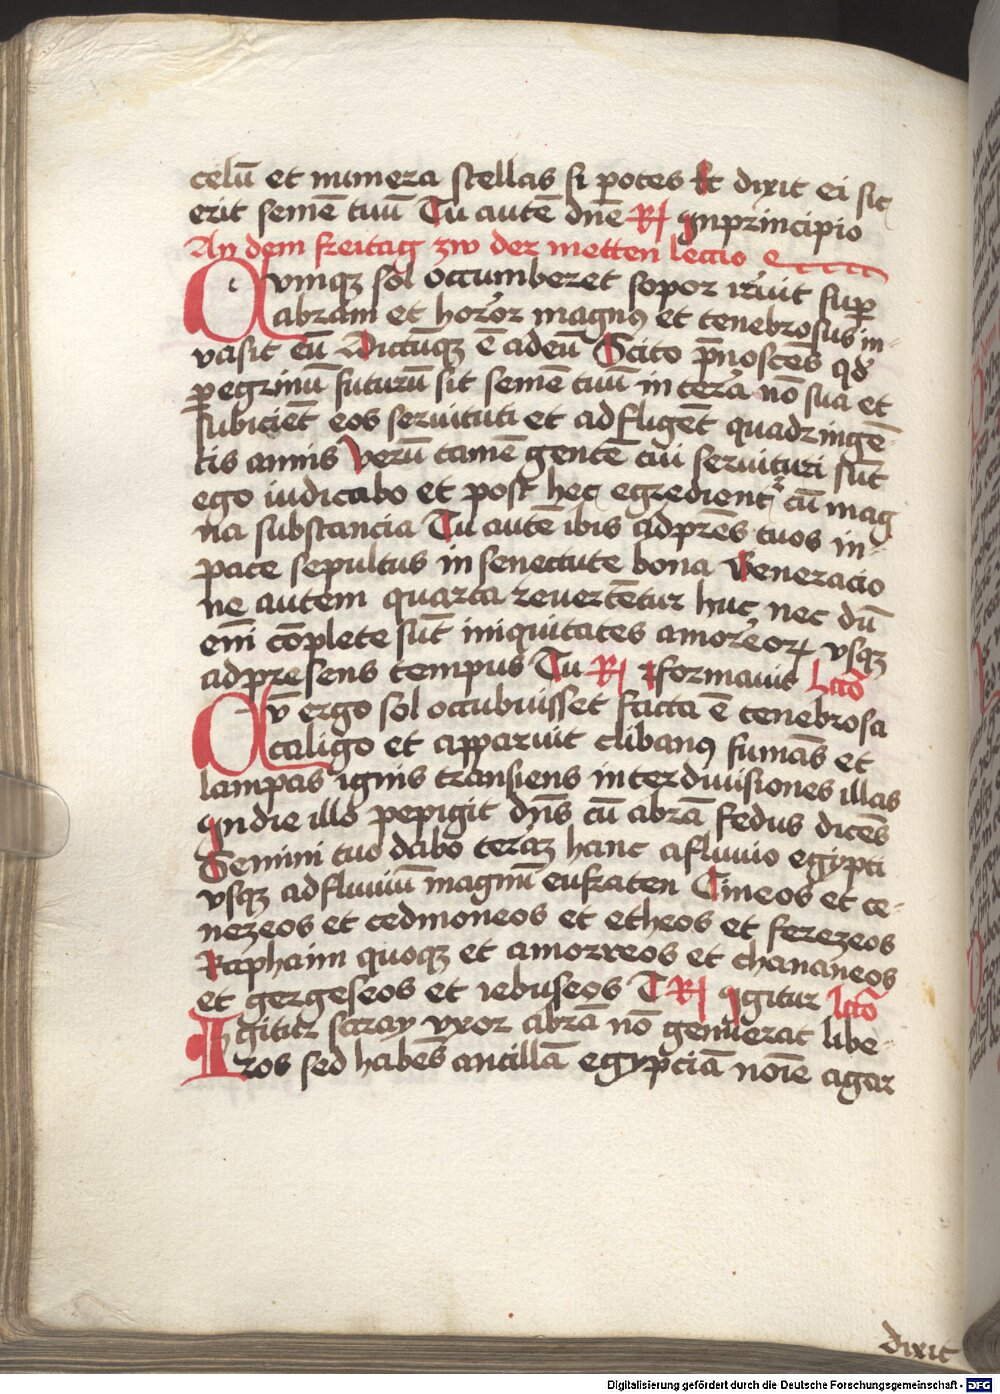 celū et numera stellas si potes Et dixit ei sic
erit semē tuū Tu autē dn̄e R Inprincipio
An dem freitag zw der metten lectio
Qvmqꝫ sol occumberet sopor irruit suꝑ
abram et horror magnꝯ et tenebrosus in-
vasit eū Dictūqꝫ ē adeū Scito p̄noscēs qd̓
ꝑegrinū futurū sit semē tuū in terra nō sua et
subicient eos seruituti et adfligēt quadringē-
tis annis Verū tamē gentē cui seruituri sūt
ego iudicabo et post hec egredientᷣ cū mag
na substancia Tu autē ibis adp̄res tuos in-
pace sepultus in senectute bona Generacio
ne autem quarta reuertētur huc nec dū
em̄ cōplete sūt iniquitates amorreoꝝ vsqꝫ
adpresens tempus Tu R formauit Lcō
Qv̄ ergo sol occubuisset facta ē tenebrosa
caligo et apparuit clibanꝯ fumās et
lampas ignis transiens inter diuisiones illas
In die illo pepigit dn̄s cū abrā fedus dicēs
Semini tuo dabo terāꝫ hanc afluuio egypti
vsqꝫ adfluuiū magnū eufraten Cineos et ce-
nezeos et cedmoneos et etheos et ferezeos
Raphaim quoqꝫ et amorreos et chananeos
et gergeseos et iebuseos T R Igitur Lcō
Igitur saray vxor abrā nō genuerat libe-
ros sed habēs ancillā egypciā noīe agar
dixit
Digitalisierung gefördert durch die Deutsche Forschungsgemeinschaft - DFG